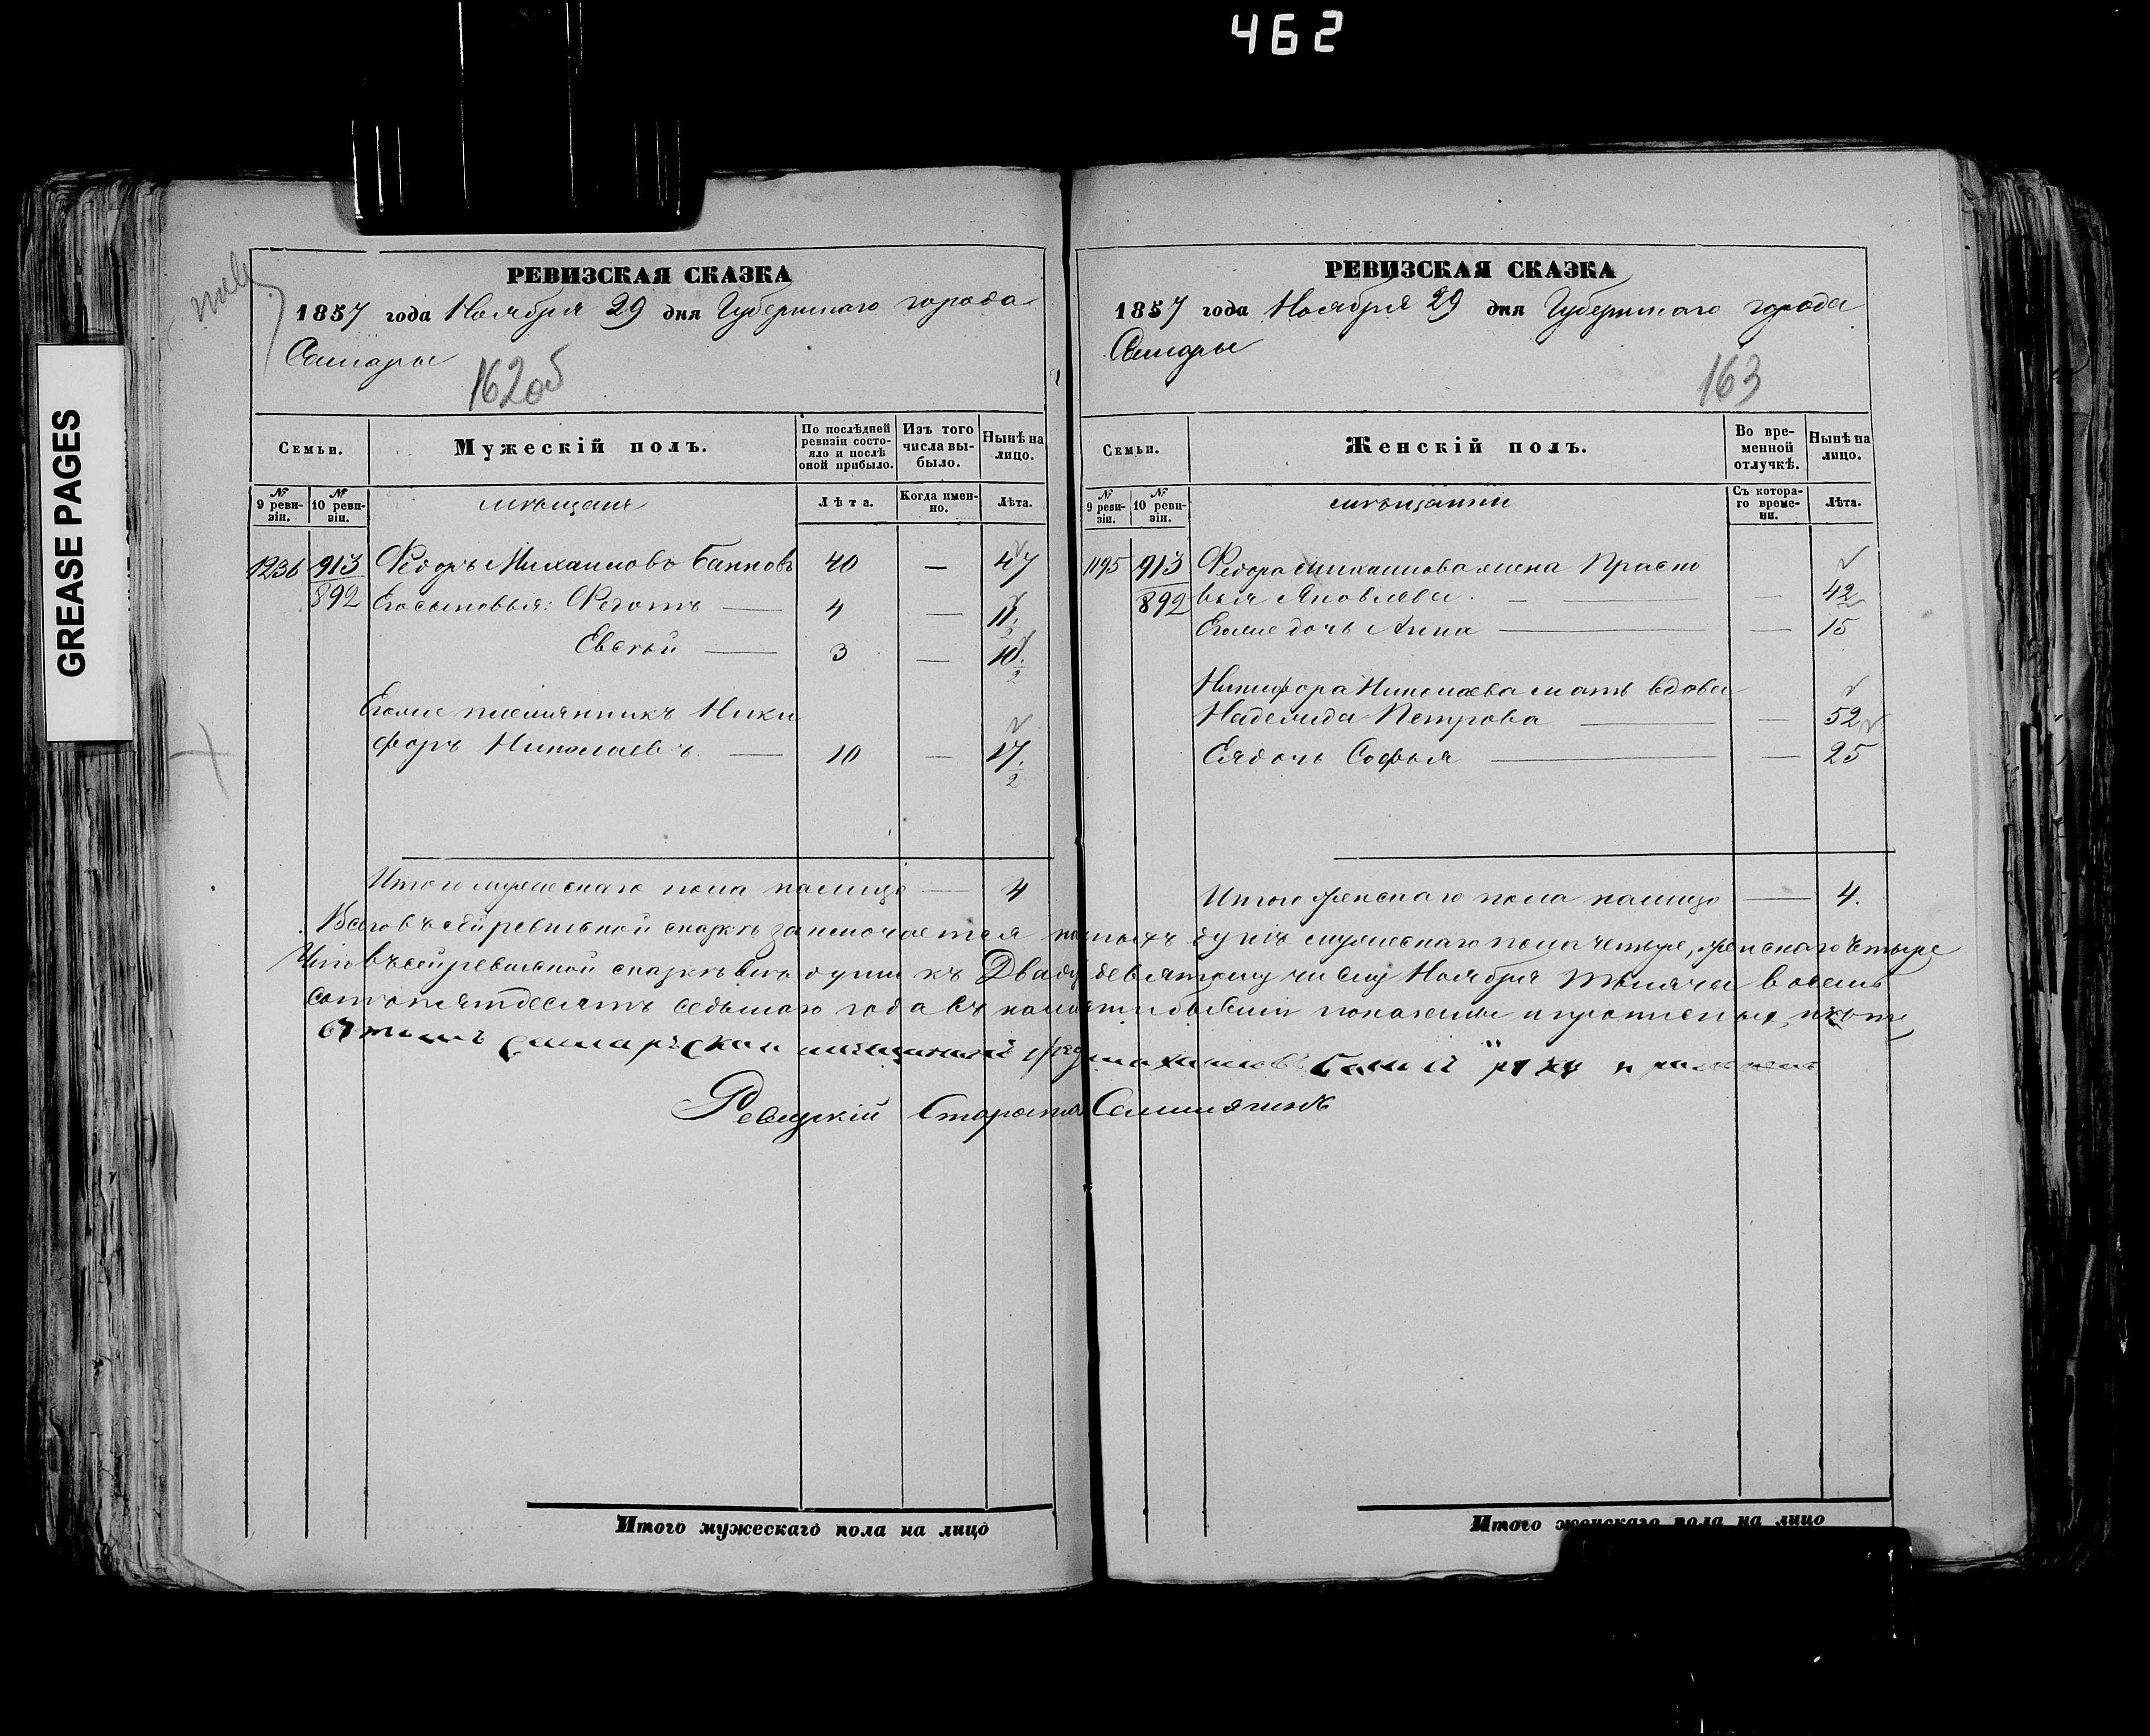 462
GREASE PAGES
РЕВИЗСКАЯ СКАЗКА
1857 года Ноября 29 дня Губернскаго города
Самары
162об
Семьи.
Мужескій полъ.
По послѣдней ревизіи состояло и послѣ оной прибыло.
Изъ того числа выбыло.
Нынѣ на лицо.
№ 9 ревизіи.
№ 10 ревизіи.
мѣщане
Лѣта.
Когда именно.
Лѣта.
1236 913 Ѳедоръ Михаиловъ Банновъ 40 — 47
892 Его сыновья: Ѳедотъ — 4 — 11 1/2
Евсѣй — 3 — 10 1/2
Его же племянникъ Ники
форъ Николаевъ — 10 — 17 1/2
Итого мужескаго пола налицо — 4
РЕВИЗСКАЯ СКАЗКА
1857 года Ноября 29 дня Губернскаго города
Самары
163
Семьи.
Женскій полъ.
Во временной отлучкѣ.
Нынѣ на лицо.
№ 9 ревизіи.
№ 10 ревизіи.
мѣщанки
Съ котораго времени.
Лѣта.
1195 913 Ѳедора Михаилова жена Праско
892 вья Яковлева — — 42
Его же дочь Анна — — 15
Никифора Николаева мать вдова
Надежда Петрова — — 52
Ея дочь Софья — — 25
Итого женскаго пола налицо — 4.
Всего въ сей ревизской сказкѣ заключается наличныхъ душъ мужескаго пола четыре, женскаго четыре
Что въ сей ревизской сказкѣ всѣ души къ Двадцать девятому числу Ноября тысяча восемь
сотъ пятдесятъ седьмаго года въ наличности бывшіи показаны и прописныхъ нѣтъ
въ томъ самарской мѣщанинъ
Ревизскій Староста
Итого мужескаго пола на лицо
Итого женскаго пола на лицо